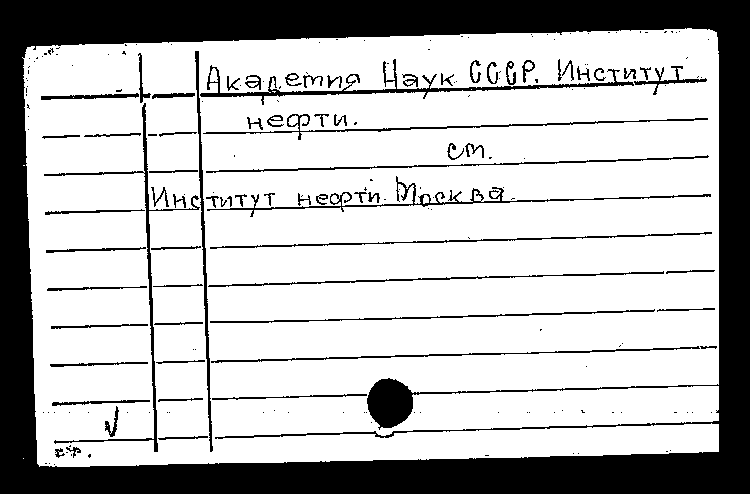 Академия Наук СССР. Институт
нефти.
ст.
Институт нефти. Москва